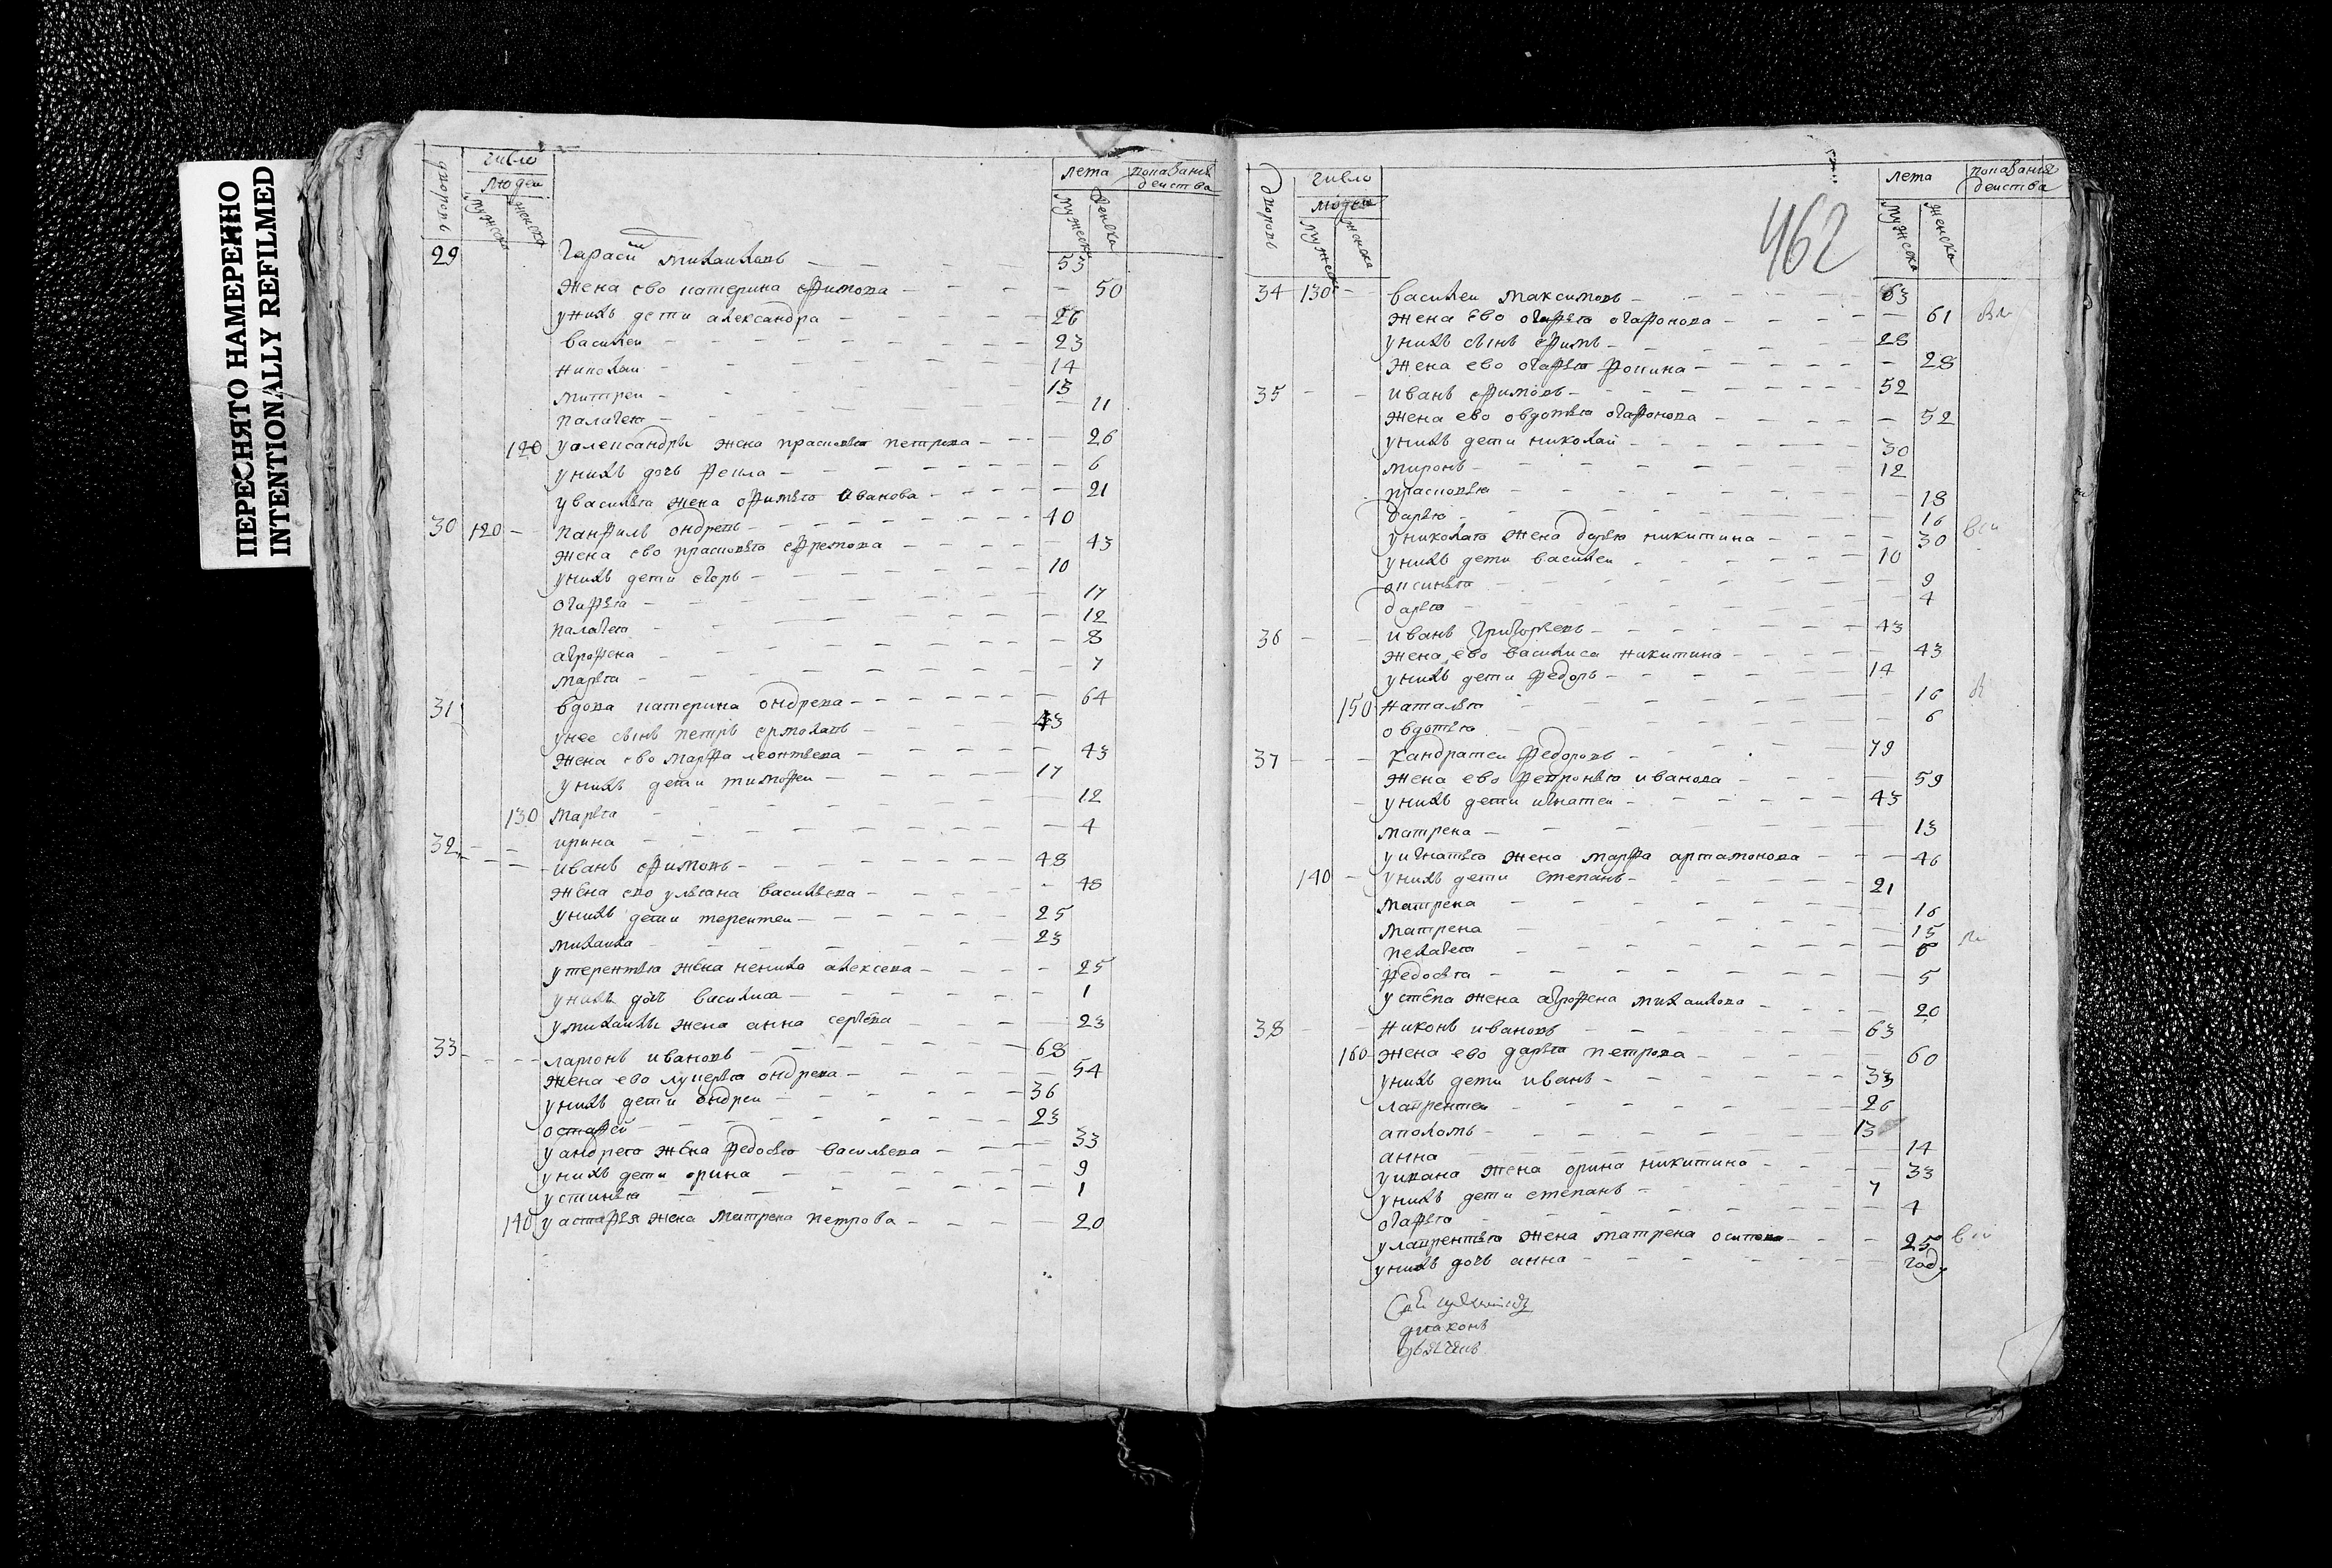 ПЕРЕСНЯТО НАМЕРЕННО
INTENTIONALLY REFILMED
дворовъ
число
людеи
мужеска
женска
лета
мужеска
женска
показания
деиства
29 Гараси михаиловъ 53
жена ево катерина ефимова 50
унихъ дети александра 26
василеи 23
николаи 14
митреи 13
палагея 11
120 уалександры жена прасковья петрова 26
унихъ дочь фекла 6
увасилья жена офимья иванова 21
30 120 панфилъ ондревъ 40
жена ево прасковья ефремова 43
унихъ дети егоръ 10
огафья 17
палагея 12
аграфена 8
марья 7
31 вдова катерина ондрева 64
унее сынъ петръ ермолавъ 43
жена ево марфа леонтьева 43
унихъ дети тимофеи 17
130 марья 12
ирина 4
32 иванъ ефимовъ 48
жена ево ульяна васильева 48
унихъ дети терентеи 25
михаила 23
утерентья жена ненила алексева 25
унихъ дочь василиса 1
умихаилы жена анна сергева 23
33 ларионъ ивановъ 68
жена ево лукерья ондрева 54
унихъ дети ондреи 36
остафей 23
уандрея жена федосья васильева 33
унихъ дети орина 9
устинья 1
140 уастафья жена матрена петрова 20
462
дворовъ
число
людеи
мужеска
женска
лета
мужеска
женска
показания
деиства
34 130 василеи максимовъ 63
жена ево огафья огафонова 61
унихъ сынъ ефимъ 28
жена ево огафья фокина 28
35 иванъ ефимовъ 52
жена ево овдотья огафонова 52
унихъ дети николаи 30
миронъ 12
прасковья 18
дарья 16
униколая жена дарья никитина 30
унихъ дети василеи 10
оксинья 9
дарья 4
36 иванъ григорьевъ 43
жена ево василиса никитина 43
унихъ дети федоръ 14
150 наталья 16
овдотья 6
37 кандратеи федоровъ 79
жена ево фетронья иванова 59
унихъ дети игнатеи 43
матрена 13
уигнатья жена марфа артамонова 46
140 унихъ дети степанъ 21
матрена 16
матрена 15
пелагея 6
федосья 5
устепа жена аграфена михаилова 20
38 никонъ ивановъ 63
160 жена ево дарья петрова 60
унихъ дети иванъ 33
лаврентеи 26
аполомъ 13
анна 14
уивана жена орина никитина 33
унихъ дети степанъ 7
огафья 4
улаврентья жена матрена осипова 25
унихъ дочь анна году
диаконъ